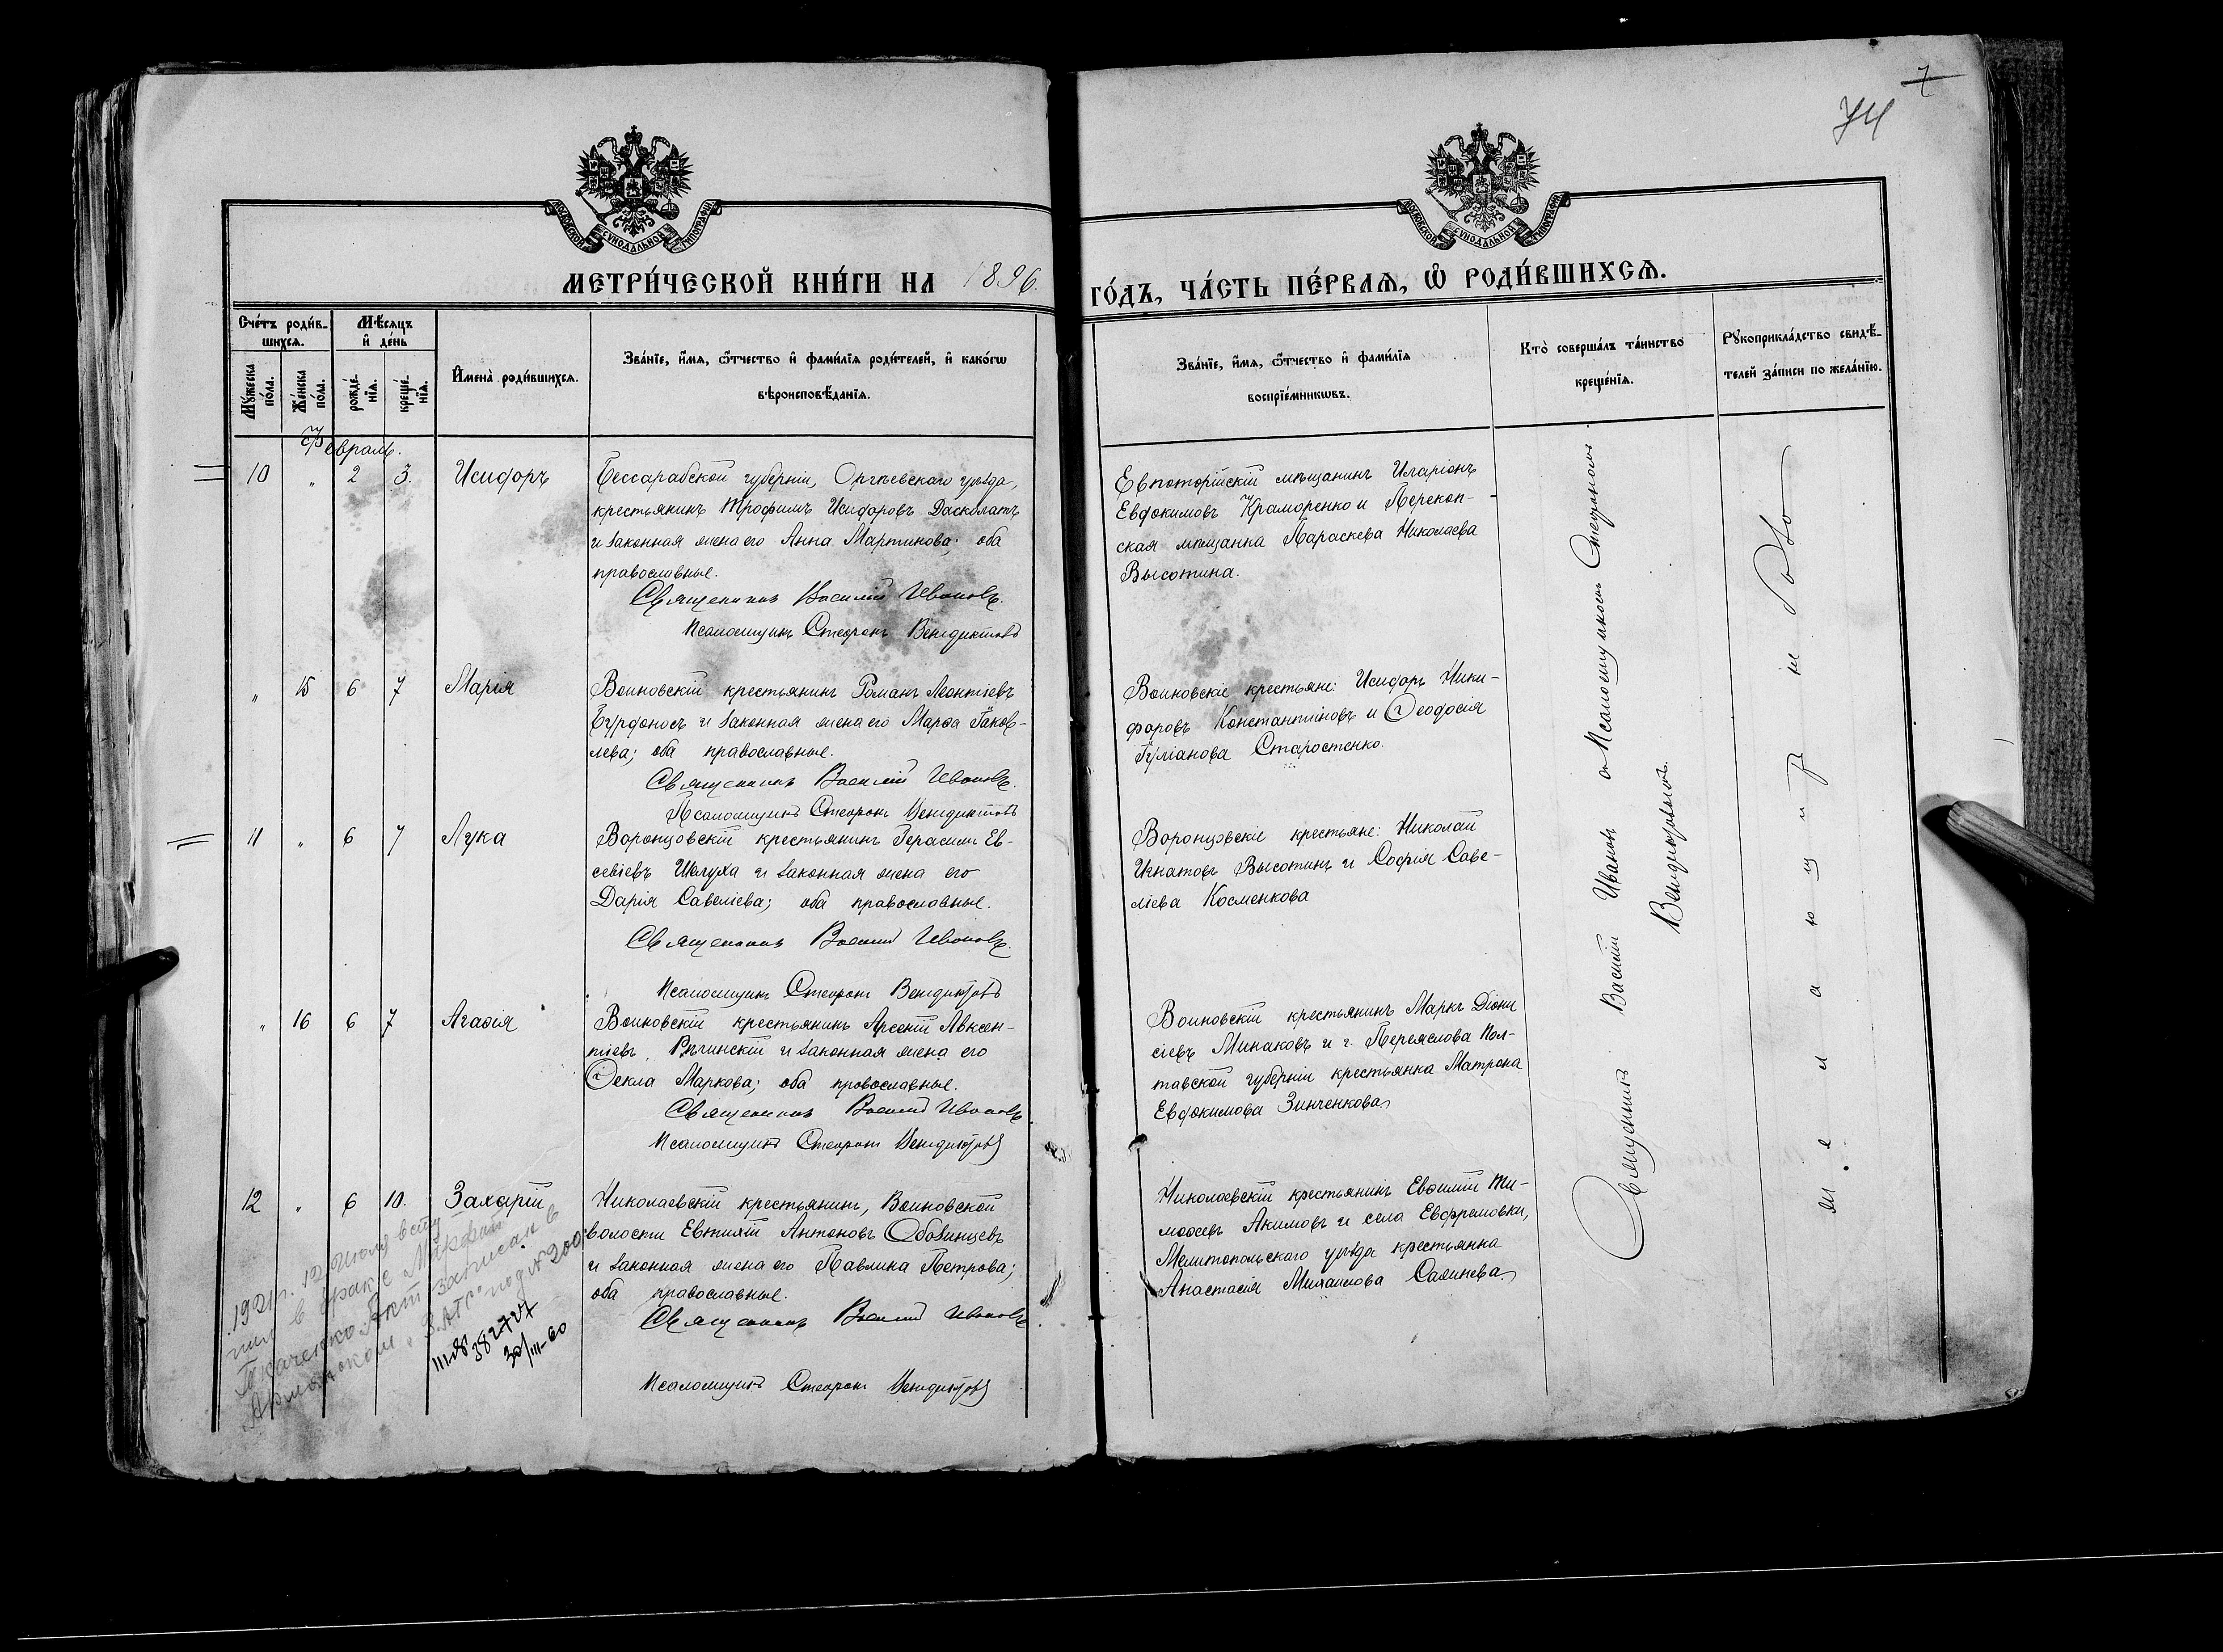 7
74
МОСКОВСКОЙ СѴНОДАЛЬНОЙ ТИПОГРАФІИ
МОСКОВСКОЙ СѴНОДАЛЬНОЙ ТИПОГРАФІИ
МЕТРИ́ЧЕСКОЙ КНИ́ГИ НА 1896.
ГО́ДЪ, ЧА́СТЬ ПЕ́РВАѦ, Ѽ РОДИ́ВШИХСѦ.
Сче́тъ роди́в-
шихсѧ.
Мꙋ́жеска по́ла.
Же́нска по́ла.
Мѣ́сѧцъ и҆ де́нь
рожде́-
нїѧ.
креще́-
нїѧ.
И҆мена̀ роди́вшихсѧ.
Зва́нїе, и҆́мѧ, ѻ҆́тчество и҆ фами́лїѧ роди́телей, и҆ како́гѡ
вѣроисповѣ́данїѧ.
Зва́нїе, и҆́мѧ, ѻ҆́тчество и҆ фами́лїѧ
воспрїе́мникѡвъ.
Кто̀ соверша́лъ та́инство
креще́нїѧ.
Рꙋкоприкла́дство свидѣ́-
телей за́писи по жела́нїю.
Февраль.
10 " 2 3. Исидоръ
Бессарабской губерніи, Оргѣевскаго уѣзда,
крестьянинъ Трофимъ Исидоровъ Даскалатъ
и законная жена его Анна Мартинова; оба
православные.
Священникъ Василій Ивановъ.
Псаломщикъ Стефонъ Вендиктовъ
Евпаторійскій мѣщанинъ Иларіонъ
Евдокимовъ Краморенко и Перекоп-
ская мѣщанка Параскева Николаева
Высотина.
" 15 6 7 Марія
Воиновскій крестьянинъ Романъ Леонтіевъ
Бурдоносъ и законная жена его Марѳа Іаков-
лева; оба православные.
Священникъ Василій Ивановъ.
Псаломщикъ Стефонъ Вендиктовъ
Воиновскіе крестьяне: Исидоръ Ники-
форовъ Константиновъ и Ѳеодосія
Іуліанова Старостенко.
11 " 6 7 Лука
Воронцовскій крестьянинъ Герасимъ Ев-
севіевъ Шелуха и законная жена его
Дарія Савеліева; оба православные.
Священникъ Василій Ивановъ.
Псаломщикъ Стефонъ Вендиктовъ
Воронцовскіе крестьяне: Николай
Игнатовъ Высотинъ и Софія Саве-
ліева Косменкова
" 16 6 7 Агаѳія
Воиновскій крестьянинъ Арсеній Авксен-
тіевъ Рѣчинскій и законная жена его
Ѳекла Маркова; оба православные.
Священникъ Василій Ивановъ
Псаломщикъ Стефонъ Вендиктовъ
Воиновскій крестьянинъ Маркъ Діони
сіевъ Минаковъ и г. Переяслова Пол-
тавской губерніи крестьянка Матрона
Евдокимова Зинченкова
12 " 6 10. Захарій
Николаевскій крестьянинъ, Воиновской
волости Евѳимій Антоновъ Обозинцевъ
и законная жена его Павлина Петрова;
оба православные.
Священникъ Василій Ивановъ.
Псаломщикъ Стефонъ Вендиктовъ
Николаевскій крестьянинъ Евѳимій Ти-
моѳеевъ Акимовъ и села Ефремовки,
Мелитопольскаго уѣзда крестьянка
Анастасія Михаилова Салинева
1921г. 12 Июля всту
пил в брак с Марфой
Ткаченко Акт записан в
Армянском "ЗАГС" под № 200
382727
30/III-60
Священникъ Василій Ивановъ съ Псаломщикомъ Стефономъ
Вендиктовымъ.
желающихъ не было